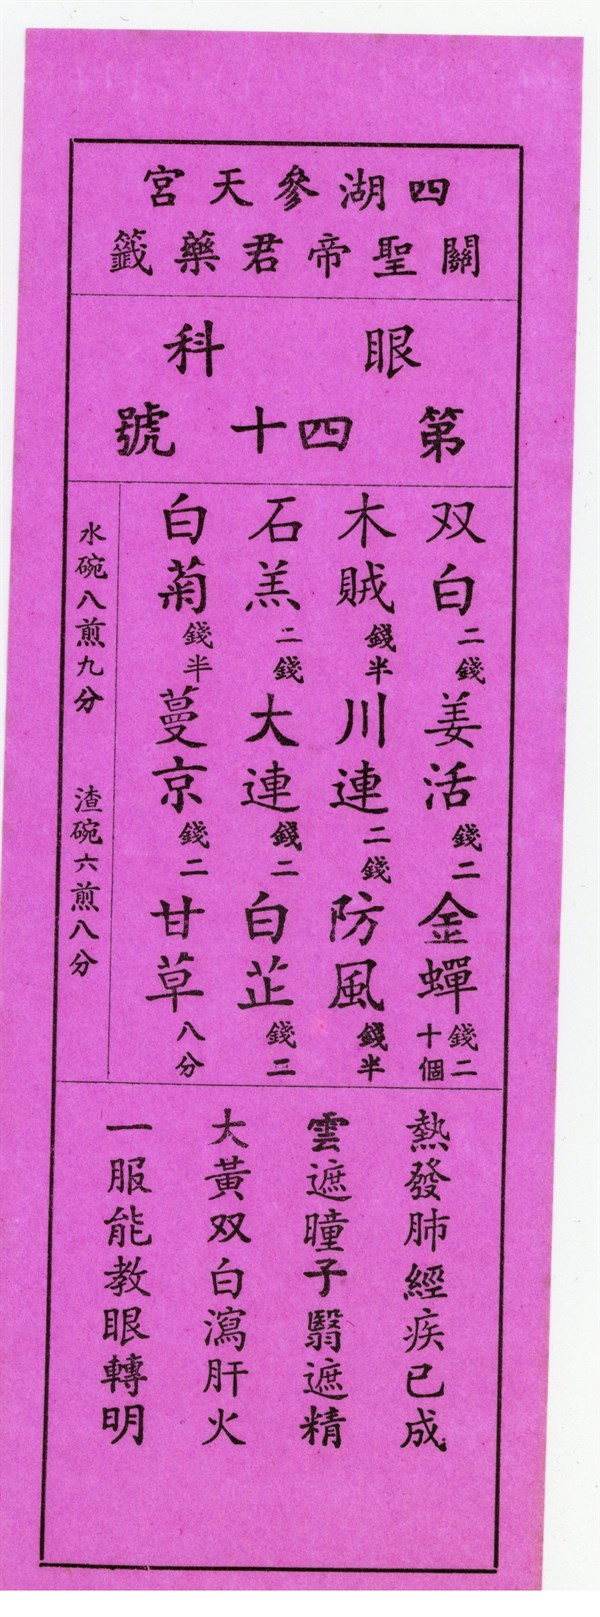 四湖參天宮
關聖帝君藥籤
眼科
第四十號
双白二錢 姜活錢二 金蟬錢二十個
木賊錢半 川連二錢 防風錢半
石羔二錢 大連錢二 白芷錢二
白菊錢半 蔓京錢二 甘草八分
水碗八煎九分 渣碗六煎八分
熱發肺經疾已成
雲遮瞳子翳遮精
大黃双白瀉肝火
一服能教眼轉明